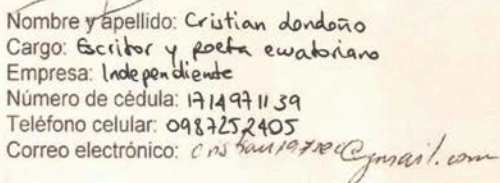 Nombre y apellido: Cristian Londoño
Cargo: Escritor y poeta ecuatoriano
Empresa: Independiente
Número de cédula: 1714971139
Teléfono celular: 0987252405
Correo electrónico: